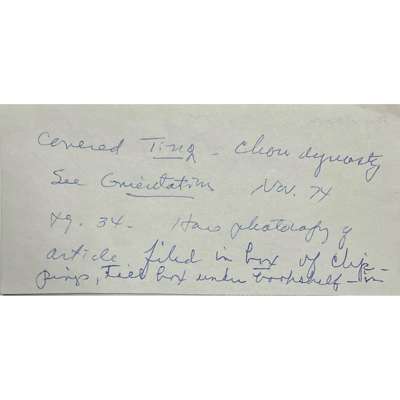 Covered Ting - Chou dynasty
See Orientation Nov. 74
pg. 34. Have photocopy of
article filed in box of clip-
pings, File box under bookshelf - in